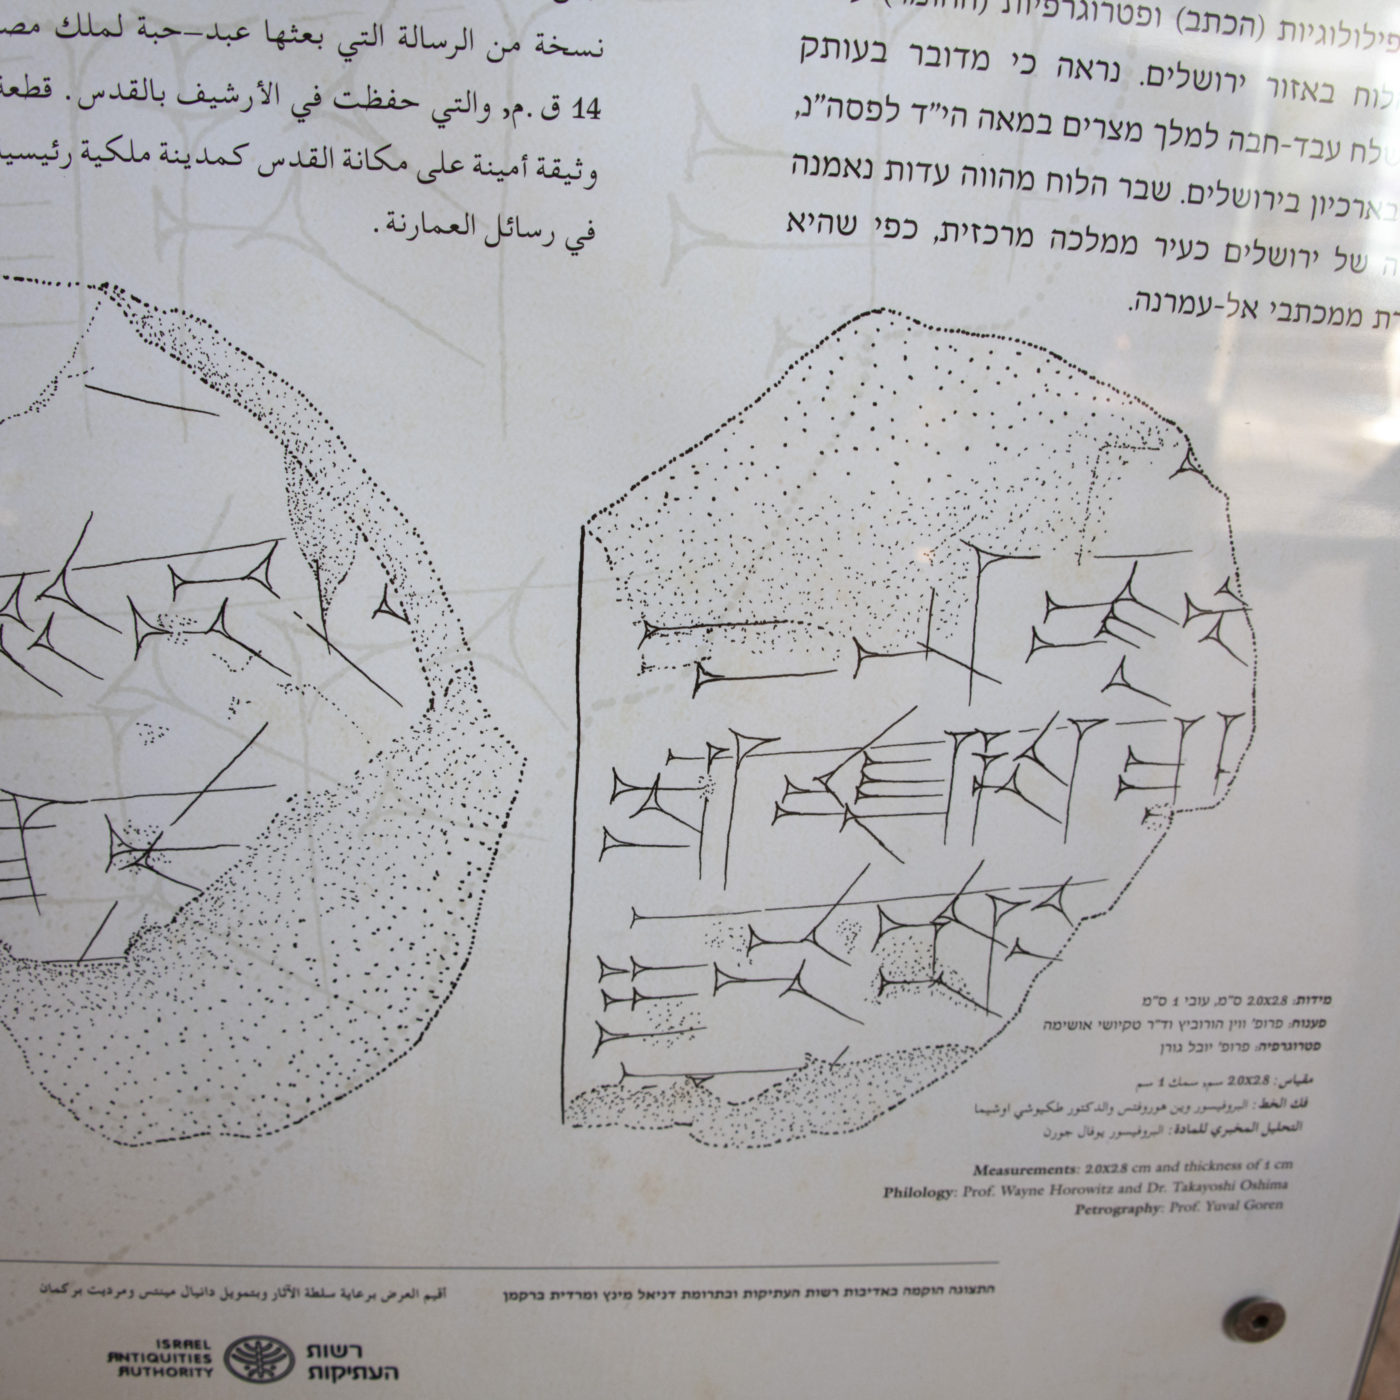 نسخة من الرسالة التي بعثها عبد-حبة لملك
14 ق.م, والتي حفظت في الأرشيف بالقدس. قطعة
وثيقة أمينة على مكانة القدس كمدينة ملكية
في رسائل العمارنة.
(הכתב) ופטרוגרפיות
באזור ירושלים. נראה כי מדובר בעותק
עבד-חבה למלך מצרים במאה הי"ד לפסה"נ,
בירושלים. שבר הלוח מהווה עדות נאמנה
של ירושלים כעיר ממלכה מרכזית, כפי שהיא
ממכתבי אל-עמרנה.
מידות: 2.0X2.8 ס"מ, עובי 1 ס"מ
פענוח: פרופ' ווין הורוביץ וד"ר טקיושי אושימה
פטרוגרפיה: פרופ' יובל גורן
مقياس: 2.0X2.8 سم, سمك 1 سم
فك الخط: البروفيسور وين هوروفتس والدكتور طكيوشي اوشيما
التحليل المخبري للمادة: البروفيسور يوفال جورن
Measurements: 2.0X2.8 cm and thickness of 1 cm
Philology: Prof. Wayne Horowitz and Dr. Takayoshi Oshima
Petrography: Prof. Yuval Goren
התצוגה הוקמה באדיבות רשות העתיקות ובתרומת דניאל מינץ ומרדית ברקמן
أقيم العرض برعاية سلطة الآثار وبتمويل دانيال مينتس ومرديت بركمان
ISRAEL
ANTIQUITIES
AUTHORITY
רשות
העתיקות